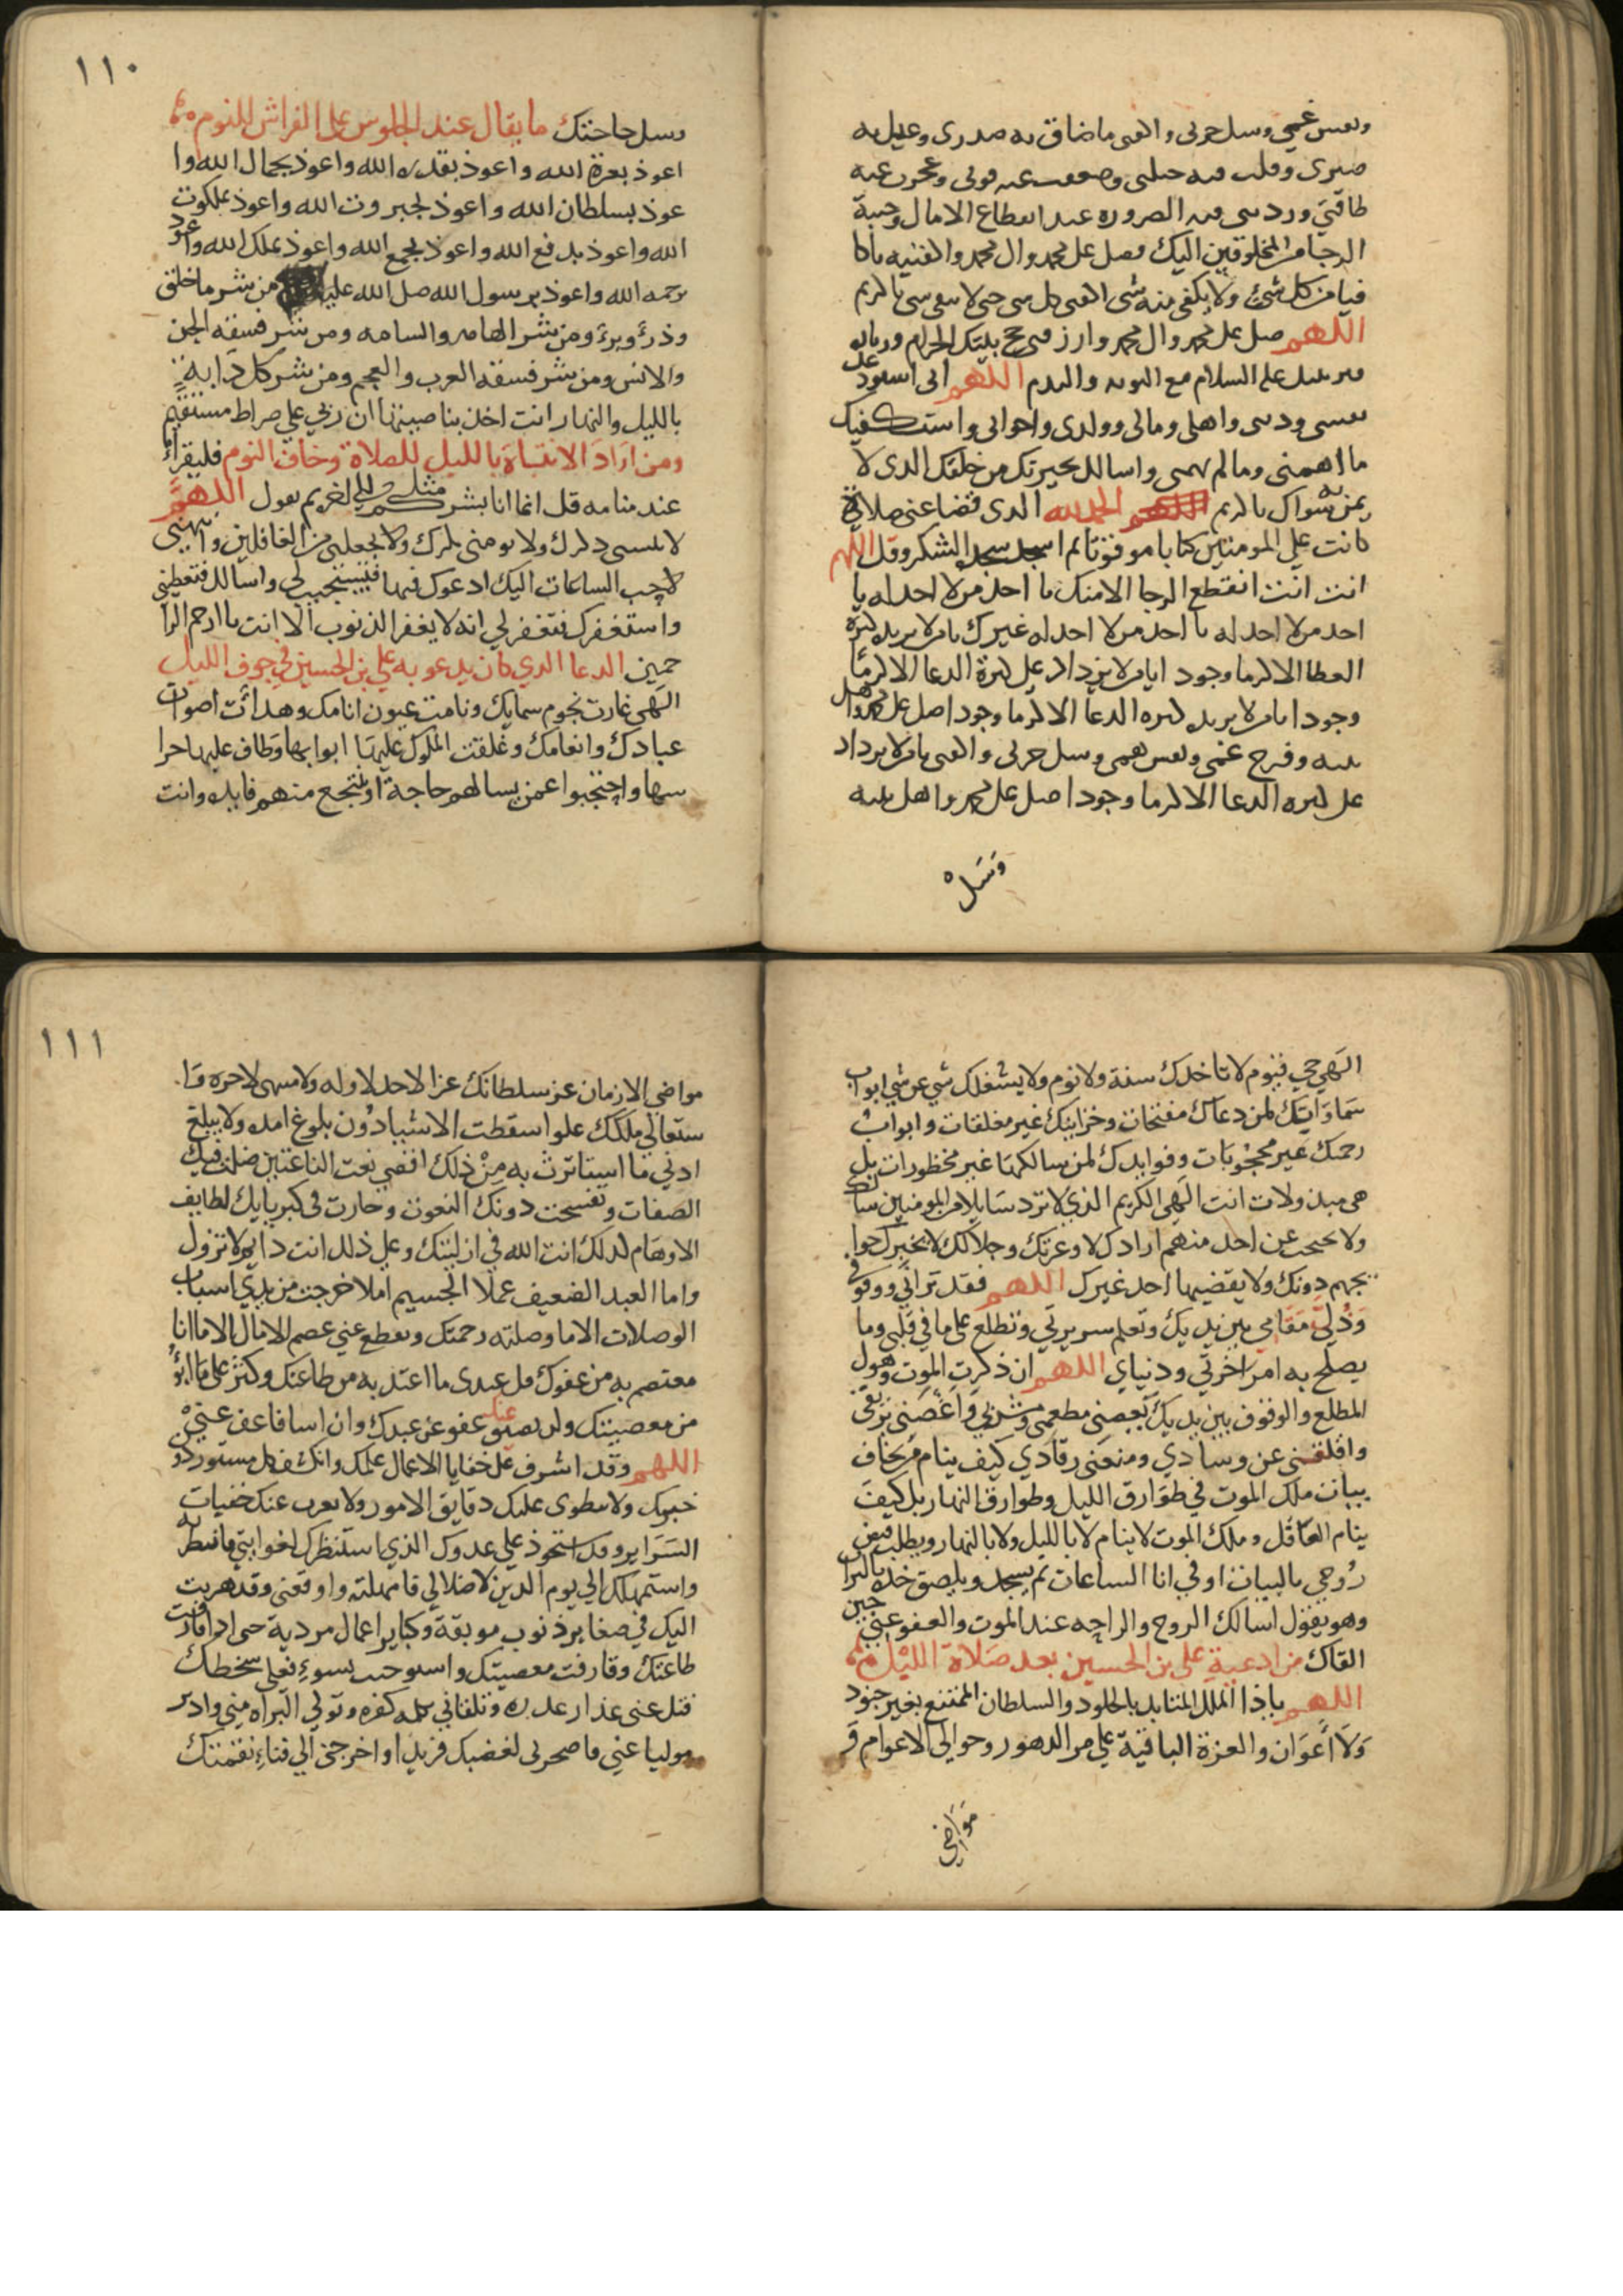 ونفس غمي وسل حزني واكفني ما ضاق به صدري وعيل به
صبري وقلت فيه حيلتي وضعفت عنه قوتي وعجزت عنه
طاقتي وردتني فيه الضرورة عند انقطاع الامال وخيبة
الرجا من المخلوقين اليك فصل على محمد وال محمد واكفنيه يا كا
فيا من كل شئ ولا يكفي منه شي اكفني كل شي حتى لا يبقى شي يا كريم
اللهم صل على محمد وال محمد وارزقني حج بيتك الحرام وزيارة
قبر نبيك عليه السلام مع التوبه والندم اللهم اني استودعك
نفسي وديني واهلي ومالي وولدي واخواني واستكفيك
ما اهمني وما لم يهمني واسالك بخيرتك من خلقك الذي لا
يمن به سواك يا كريم اللهم الحمد لله الذي قضا عني صلاة
كانت على المومنين كتابا موقوتا ثم اسجد سجد الشكر وقل اللهم
انت انت انقطع الرجا الا منك يا احد من لا احد له يا
احد من لا احد له يا احد من لا احد له غيرك يا من لا يزيده كثرة
العطا الا كرما وجود ا يا من لا يزداد على كثرة الدعا الا كرما
وجودا يا من لا يزيده كثره الدعا الا كرما وجودا صل على محمد واهل
بيته وفرج غمي ونفس همي وسل حزني واكفني يا من لا يزداد
على كثره الدعا الا كرما وجود ا صل على محمد واهل بيته
وَسَلْ
١١٠
وسل حاجتك ما يقال عند الجلوس على الفراش للنوم
اعوذ بعزة الله واعوذ بقدرة الله واعوذ بجمال الله وا
عوذ بسلطان الله واعوذ بجبروت الله واعوذ بملكوت
الله واعوذ بدفع الله واعوذ بجمع الله واعوذ بملك الله واعوذ
برحمه الله واعوذ برسول الله صل الله عليه من شر ما خلق
وذرأ وبرأ ومن شر الهامه والسامه ومن شر فسقة الجن
والانس ومن شر فسقه العرب والعجم ومن شر كل دابة
بالليل والنهار انت اخذ بناصيتها ان ربي علي صراط مستقيم
ومن اراد الانتباه بالليل للصلاة وخاف النوم فليقرأ
عند منامه قل انما انا بشر مثلكم الى اخر ثم يقول اللهم
لا تنسني ذكرك ولا تومني مكرك ولا تجعلني من الغافلين وانبهني
لاحب الساعات اليك ادعوك فيها فتستجيب لي واسالك فتعطيني
واستغفرك فتغفر لي انه لا يغفر الذنوب الا انت يا ارحم الرا
حمين الدعا الذي كان يدعو به علي بن الحسين في جوف الليل
الهي غارت نجوم سمايك ونامت عيون انامك وهدات اصوات
عبادك وانعامك وغلقت الملوك عليها ابوابها وطاف عليها حرا
سها واحتجبوا عمن يسالهم حاجة او ينتجع منهم فايده وانت
الهي حي قيوم لا تاخذك سنة ولا نوم ولا يشغلك شي عن شي ابواب
سماواتك لمن دعاك مفتحات وخزاينك غير مغلقات وابواب
رحمتك غير محجوبات وفوايدك لمن سالكها غير محظورات بل
هي مبذولات انت الهي الكريم الذي لا ترد سايلا من المومنين سالك
ولا تحتجب عن احد منهم ارادك لا وعزتك وجلالك لا تختزل حوا
يجهم دونك ولا يقضيها احد غيرك اللهم فقد تراني ووقوفي
وذُلّ مقامي بين يديك وتعلم سريرتي وتطلع على ما في قلبي وما
يصلح به امر اخرتي ودنياي اللهم ان ذكرت الموت وهول
المطلع والوقوف بين يديك نغصني مطعمي ومشربي واغصني بريقي
واقلقني عن وسادي ومنعني رقادي كيف ينام من يخاف
بيات ملك الموت في طوارق الليل وطوارق النهار بل كيف
ينام العاقل وملك الموت لا ينام لا بالليل ولا بالنهار ويطلب قبض
رُوحي بالبيات او في انا الساعات ثم يسجد ويلصق خده بالتراب
وهو يقول اسالك الروح والراحه عند الموت والعفو عني حين
القاك من ادعية علي بن الحسين بعد صلاة الليل
اللهم ياذا الملك المتابد بالخلود والسلطان الممتنع بغير جنود
ولا اعوان والعزة الباقية علي مر الدهور وخوالي الاعوام و
مَوَاضِي
١١١
مواضي الازمان عز سلطانك عزا لا حد لاوله ولا منتهى لاخره وا
ستعالي ملكك علوا سقطت الاشيا دون بلوغ امده ولا يبلغ
ادني ما استاثرت به من ذلك اقصي نعت الناعتين ضلت فيك
الصفات وتفسخت دونك النعوت وحارت في كبريايك لطايف
الاوهام كذلك انت الله في ازليتك وعلى ذلك انت دايم لا تزول
واما العبد الضعيف عملا الجسيم املا خرجت من يدي اسباب
الوصلات الا ما وصلته رحمتك وتقطع عني عصم الامال الا ما انا
معتصم به من عفوك قل عندي ما اعتد به من طاعتك وكثر علي ما ابؤ
من معصيتك ولن يضيق عنك عفو عن عبدك وان اسا فاعف عني
اللهم وقد اشرف على خفايا الاعمال علمك وانكشف كل مستور دون
خبرك ولا تنطوي عليك دقايق الامور ولا يعزب عنك خفيات
السراير وقد استحوذ علي عدوك الذي استنظرك لغوايتي فانظرته
واستمهلك الي يوم الدين لاضلالي فامهلته واوقعني وقد هربت
اليك في صغاير ذنوب موبقة وكباير اعمال مردية حتى اذا فارقت
طاعتك وقارفت معصيتك واستوجبت بسوء فعلي سخطك
فتل عني عذار عذره وتلقاني بكلمه كفره وتولي البراه مني وادبر
موليا عني فاصحرني لغضبك فريدا واخرجني الي فناء نقمتك